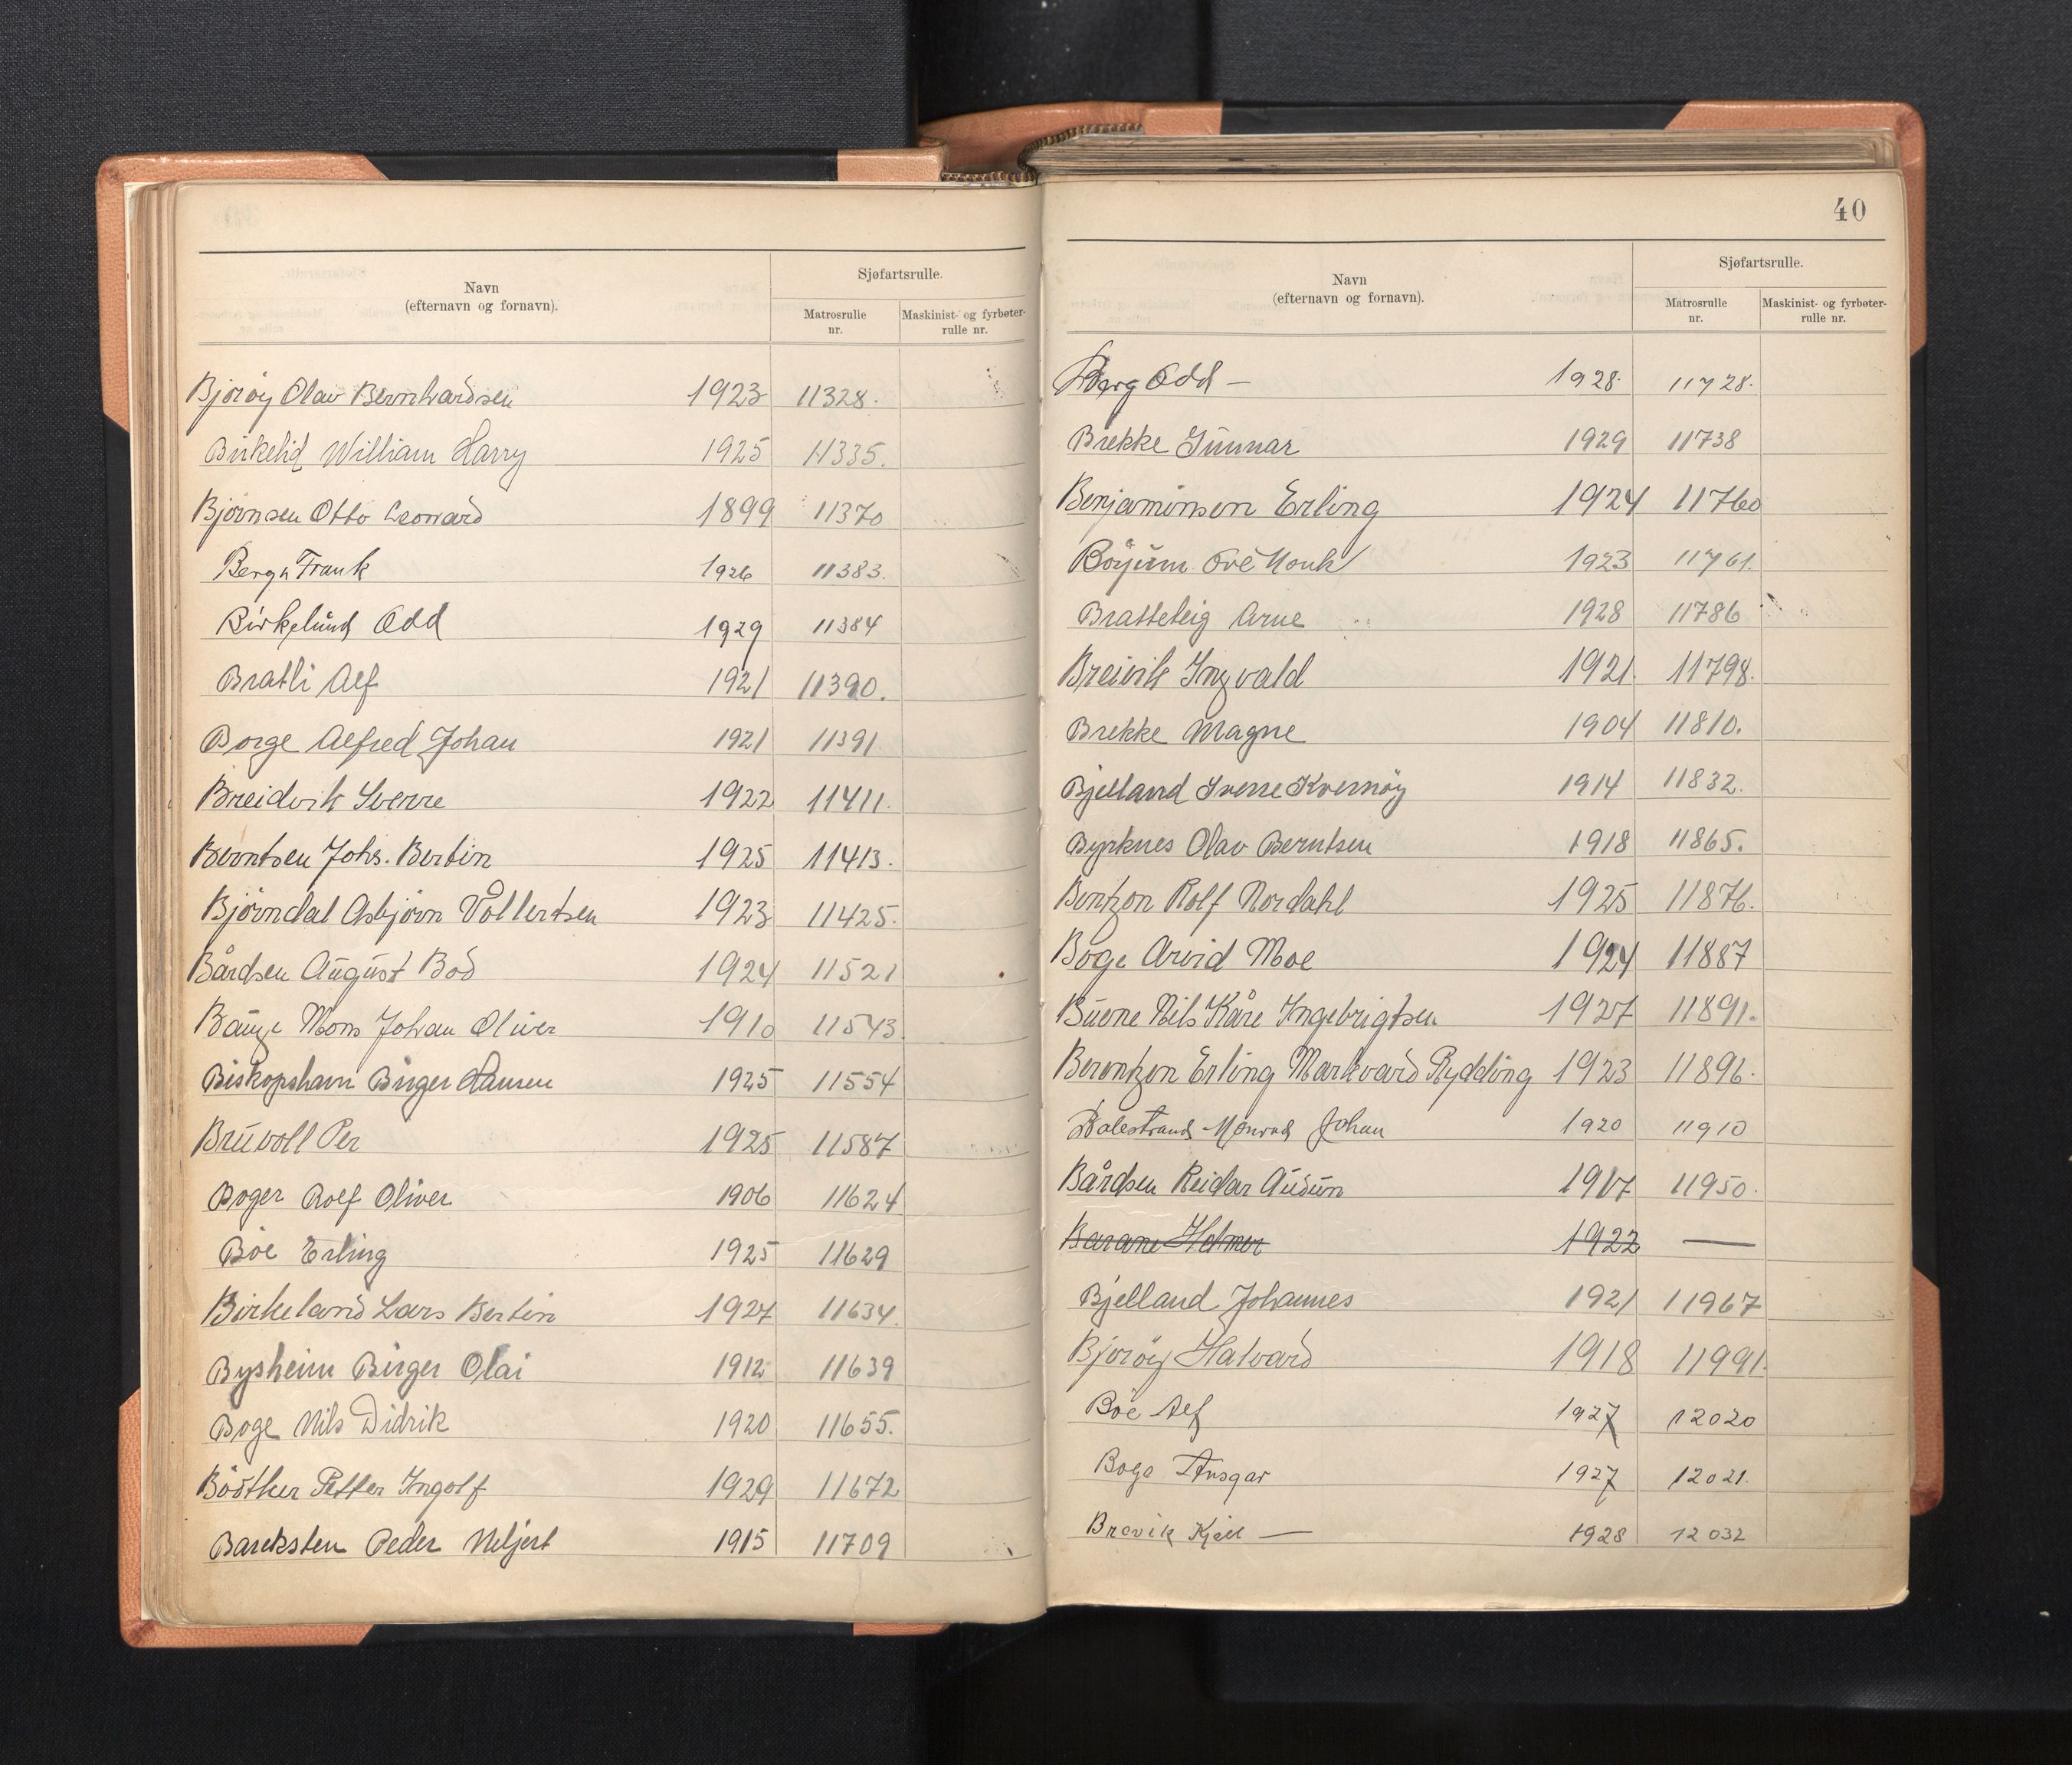 Navn
(efternavn og fornavn).
Sjøfartsrulle.
Matrosrulle
nr.
Maskinist- og fyrbøter-
rulle nr.
Bjorøy Olav Bernhardsen 1923 11328.
Birkelid William Harry 1925 11335.
Bjørnsen Otto Leonard 1899 11370
Bergh Frank 1926 11383.
Birkelund Odd 1929 11384
Bratli Alf 1921 11390.
Borge Alfred Johan 1921 11391
Breidvik Sverre 1922 11411.
Berntsen Johs. Bertin 1925 11413.
Bjørndal Asbjørn Vollertsen 1923 11425.
Bårdsen August Bod 1924 11521
Bauge Mons Johan Oliver 1910 11543
Biskopshavn Birger Hansen 1925 11554
Bruvoll Per 1925 11587
Boger Rolf Oliver 1906 11624
Böe Erling 1925 11629
Birkeland Lars Bertin 1927 11634.
Bysheim Birger Olai 1912 11639
Boge Nils Didrik 1920 11655.
Böðtker Petter Ingolf 1929 11672
Bareksten Peder Meljert 1915 11709
40
Navn
(efternavn og fornavn).
Sjøfartsrulle.
Matrosrulle
nr.
Maskinist- og fyrbøter-
rulle nr.
Berg Odd — 1928. 11728.
Brekke Gunnar 1929 11738
Benjaminsen Erling 1924 11760
Böyum Ove Munk 1923 11761.
Bratteteig Arne 1928 11786
Breivik Ingvald 1921. 11798.
Brekke Magne 1904 11810.
Bjelland Sverre Kvernøy 1914 11832.
Byrknes Olav Berntsen 1918 11865.
Bentzon Rolf Nordahl 1925 11876.
Boge Arvid Moe 1924 11887
Buene Nils Kåre Ingebrigtsen 1927 11891.
Berentzen Erling Markvard Rydding 1923 11896.
Balestrand-Monrad Johan 1920 11910
Bårdsen Reidar Audun 1917 11950.
Barane Helmer 1922 —
Bjelland Johannes 1921 11967
Bjorøy Halvard 1918 11991.
Böe Alf 1927 12020
Boge Ansgar 1927 12021.
Brevik Kjell — 1928 12032